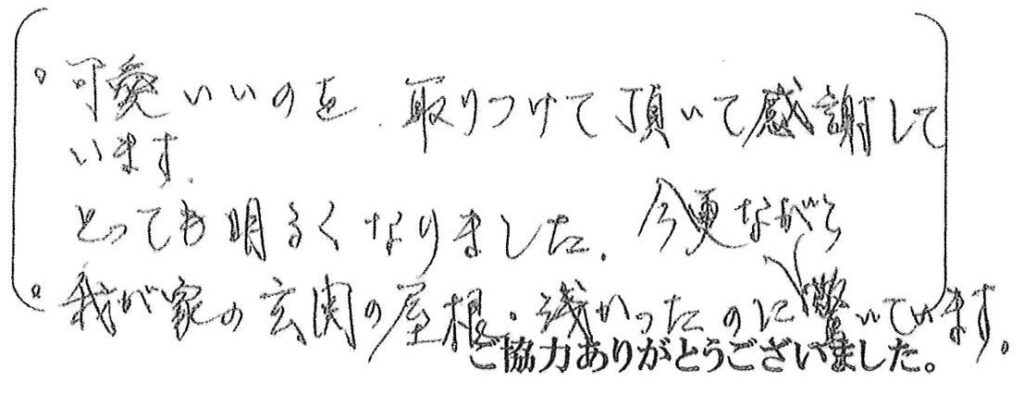 。可愛いいのを、取りつけて頂いて感謝して
います。
とっても明るくなりました。今更ながら
。我が家の玄関の屋根・浅かったのに驚いています。
ご協力ありがとうございました。